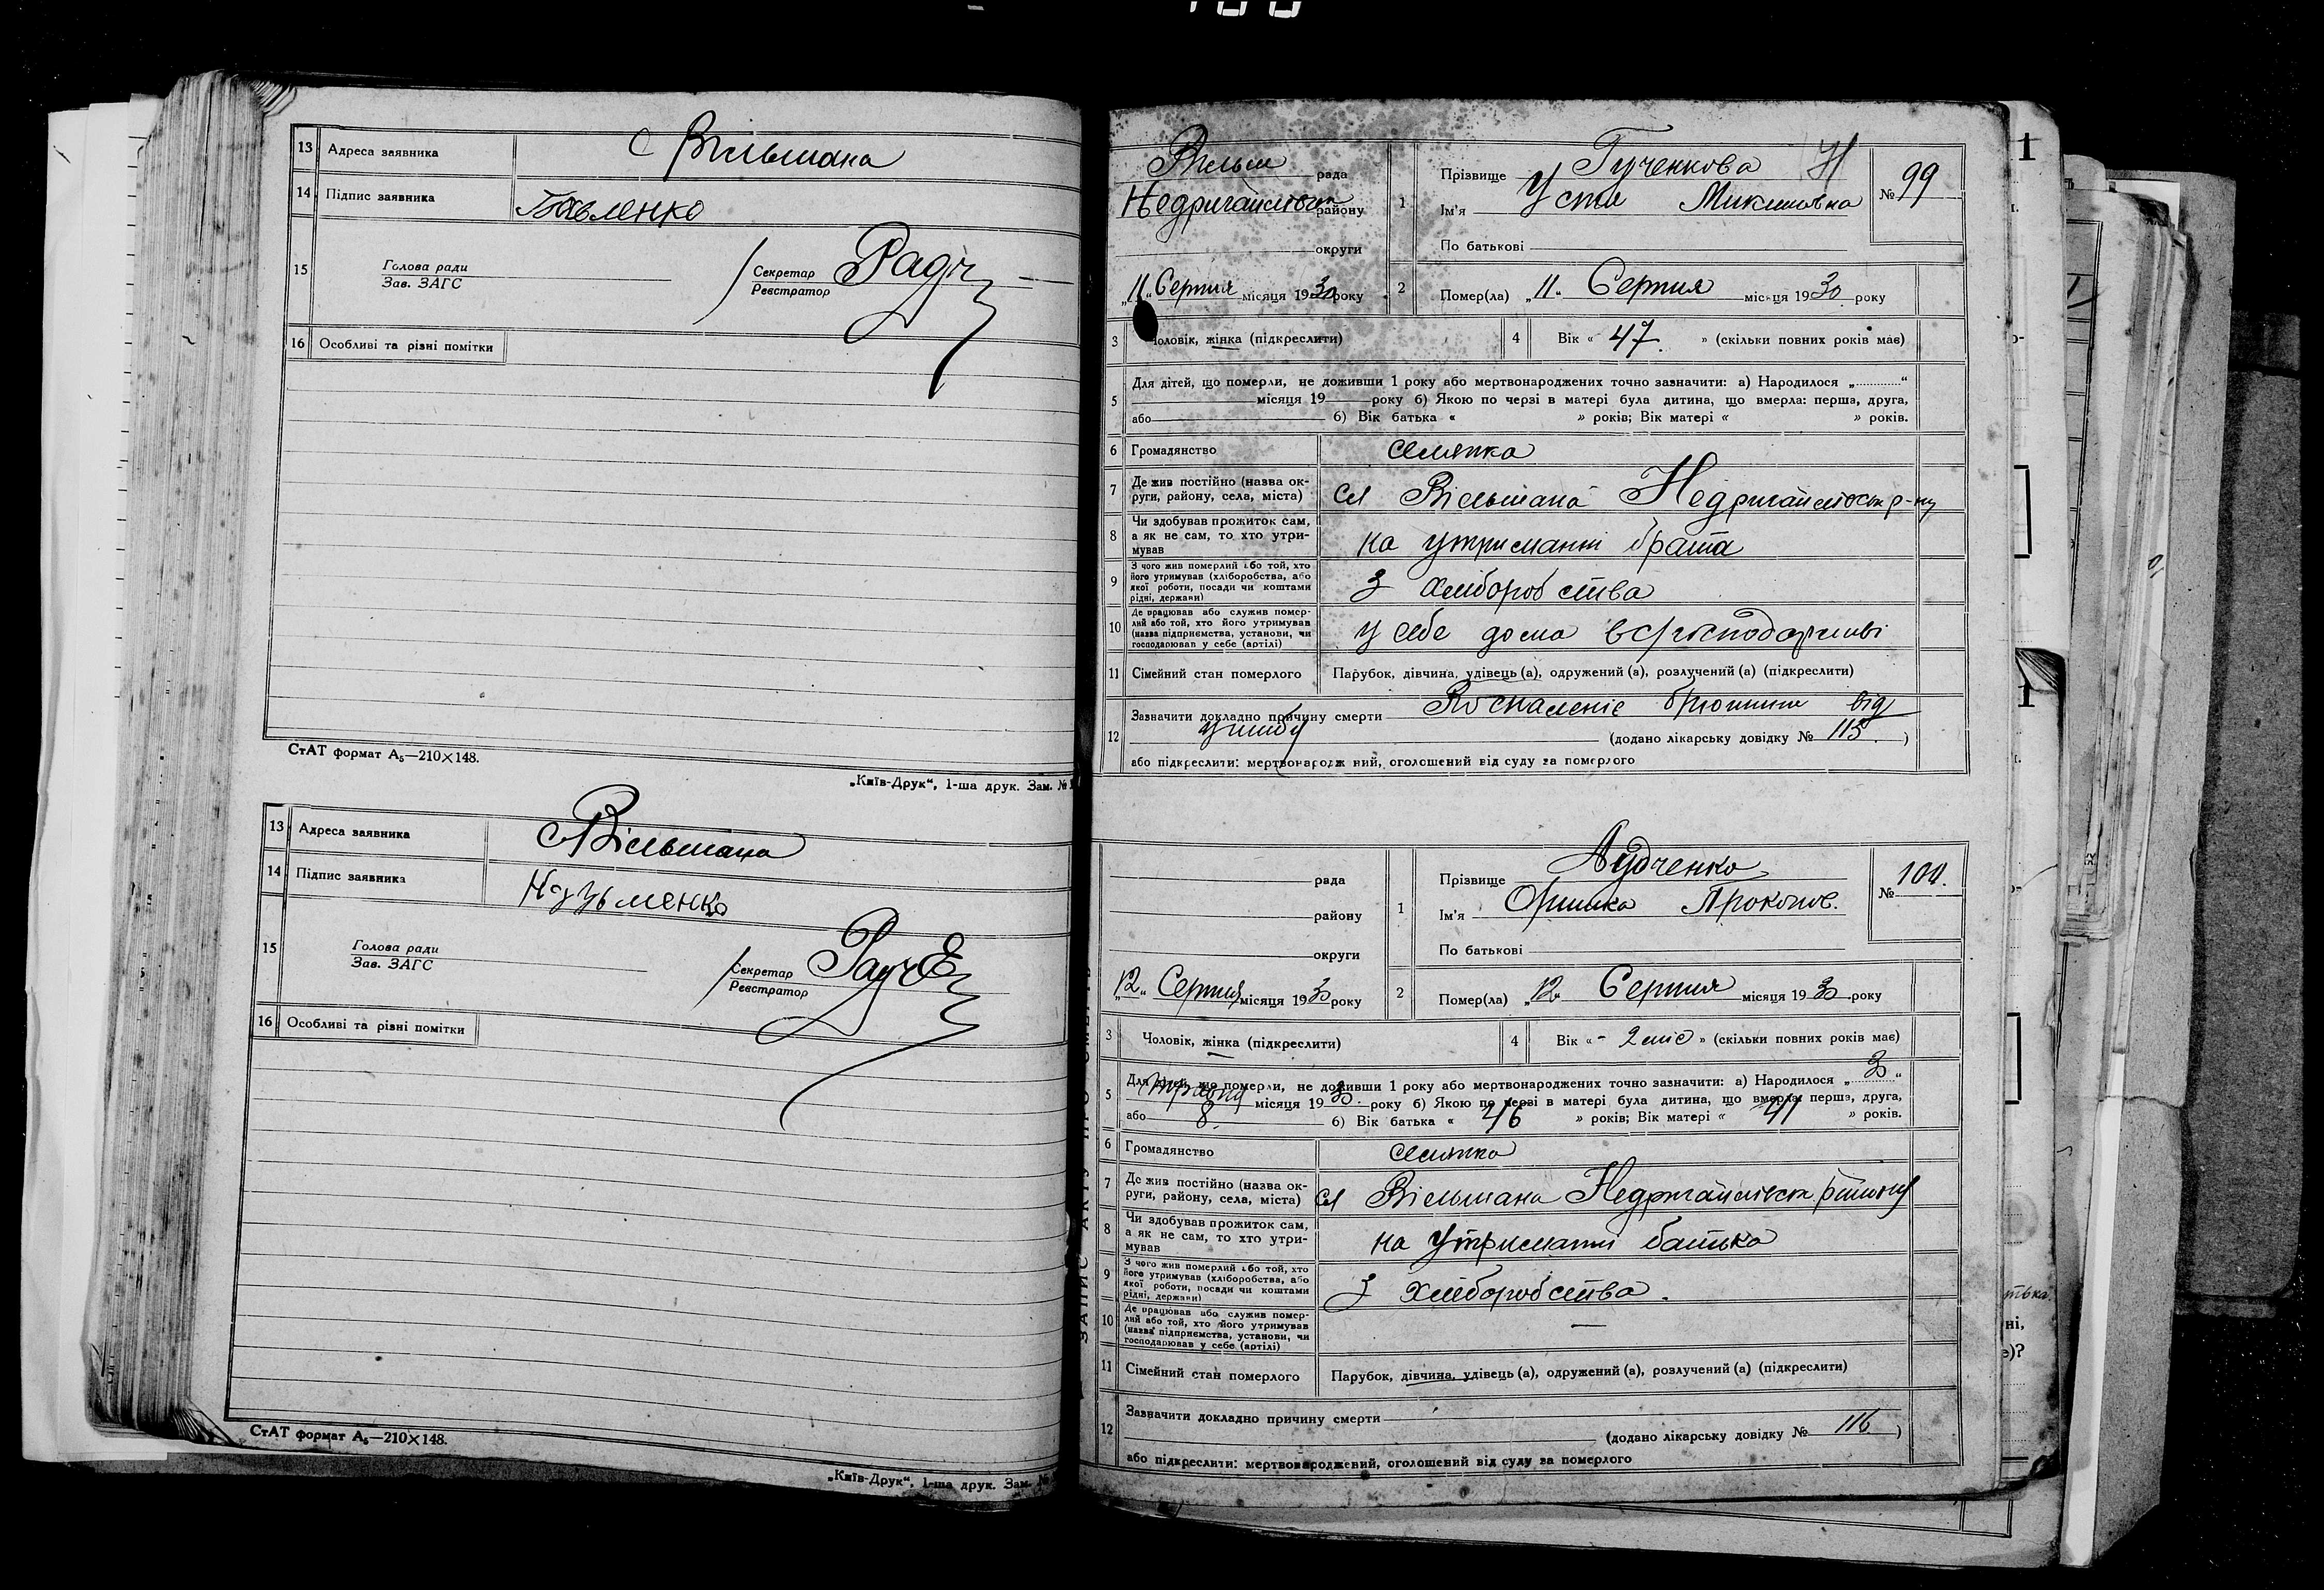 13 Адреса заявника с Вільшана
14 Підпис заявника Павленко
15 Голова ради
Зав. ЗАГС
Секретар
Реєстратор
16 Особливі та різні помітки
СтАТ формат А₅—210×148.
„Київ-Друк“, 1-ша друк. Зам. №
13 Адреса заявника с Вільшана
14 Підпис заявника Кузьменко
15 Голова ради
Зав. ЗАГС
Секретар
Реєстратор
16 Особливі та різні помітки
СтАТ формат А₅—210×148.
„Київ-Друк“, 1-ша друк. Зам. №
Вільш рада
Недригайлівськ району
округи
„11“ Серпня місяця 1930 року
1 Прізвище Гученкова
Ім'я Устя Микитовна
По батькові
№ 99
2 Помер(ла) „11“ Серпня місяця 1930 року
3 Чоловік, жінка (підкреслити)
4 Вік « 47 » (скільки повних років має)
5 Для дітей, що померли, не доживши 1 року або мертвонароджених точно зазначити: а) Народилося „ “
місяця 19 року б) Якою по черзі в матері була дитина, що вмерла: перша, друга,
або б) Вік батька « » років; Вік матері « » років.
6 Громадянство селянка
7 Де жив постійно (назва округи, району, села, міста) сл Вільшана Недригайлівськ р-ну
8 Чи здобував прожиток сам, а як не сам, то хто утримував на утриманні брата
9 З чого жив померлий або той, хто його утримував (хліборобства, або якої роботи, посади чи коштами рідні, держави) З хліборобства
10 Де працював або служив померлий або той, хто його утримував (назва підприємства, установи, чи господарював у себе (артілі) у себе дома в с/господарстві
11 Сімейний стан померлого Парубок, дівчина, удівець (а), одружений (а), розлучений (а) (підкреслити)
12 Зазначити докладно причину смерти Воспаленіє брюшини від
ушибу (додано лікарську довідку № 115)
або підкреслити: мертвонароджений, оголошений від суду за померлого
рада
району
округи
„12“ Серпня місяця 1930 року
1 Прізвище Дудченко
Ім'я Оришка Прокопов.
По батькові
№ 100.
2 Помер(ла) „12“ Серпня місяця 1930 року
3 Чоловік, жінка (підкреслити)
4 Вік «- 2 міс » (скільки повних років має)
5 Для дітей, що померли, не доживши 1 року або мертвонароджених точно зазначити: а) Народилося „ “
місяця 1930. року б) Якою по черзі в матері була дитина, що вмерла: перша, друга,
або 8. б) Вік батька « 46 » років; Вік матері « 41 » років.
6 Громадянство селянка
7 Де жив постійно (назва округи, району, села, міста) сл Вільшана Недригайлівськ району
8 Чи здобував прожиток сам, а як не сам, то хто утримував на утриманні батька
9 З чого жив померлий або той, хто його утримував (хліборобства, або якої роботи, посади чи коштами рідні, держави) З хліборобства.
10 Де працював або служив померлий або той, хто його утримував (назва підприємства, установи, чи господарював у себе (артілі) —
11 Сімейний стан померлого Парубок, дівчина, удівець (а), одружений (а), розлучений (а) (підкреслити)
12 Зазначити докладно причину смерти
(додано лікарську довідку № 116)
або підкреслити: мертвонароджений, оголошений від суду за померлого